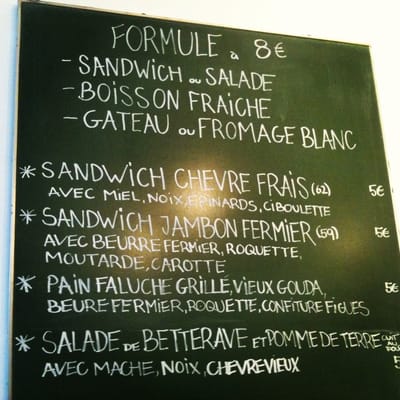 FORMULE à 8€
- SANDWICH OU SALADE
- BOISSON FRAICHE
- GATEAU OU FROMAGE BLANC
* SANDWICH CHEVRE FRAIS (62) 5€
AVEC MIEL, NOIX, EPINARDS, CIBOULETTE
* SANDWICH JAMBON FERMIER (59) 5€
AVEC BEURRE FERMIER, ROQUETTE,
MOUTARDE, CAROTTE
* PAIN FALUCHE GRILLÉ, VIEUX GOUDA, 5€
BEURE FERMIER, ROQUETTE, CONFITURE FIGUES
* SALADE DE BETTERAVE ET POMME DE TERRE CUIT AU
AVEC MACHE, NOIX, CHEVRE VIEUX 5